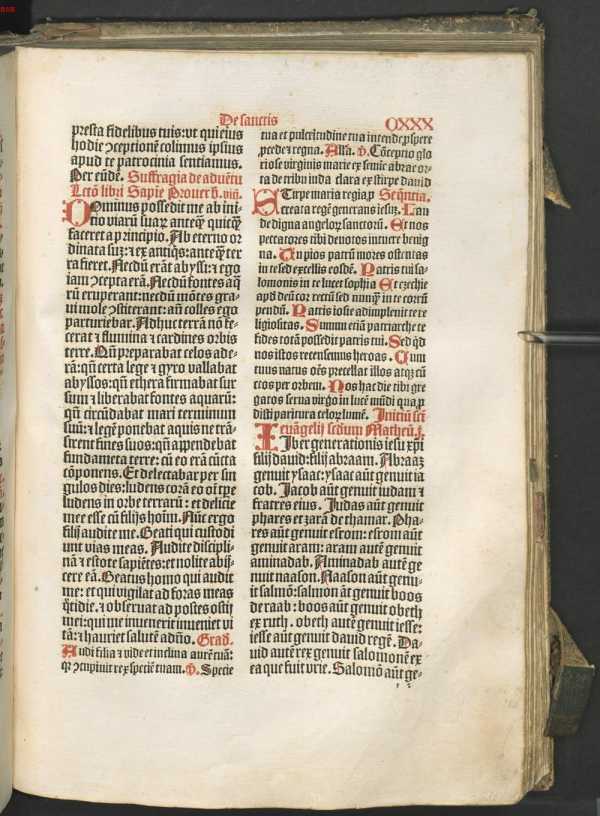 De sanctis
CXXX
presta fidelibus tuis: vt qui eius
hodie ↄceptionē colimus ipsius
apud te patrocinia sentiamus.
Per eūdē. Suffragia de aduētu
Lectō libri Sapiē Prouerb. viii.
DOminus possedit me ab ini
tio viarū suarꝝ anteꝙ̄ quicꝙ̄
faceret a principio. Ab eterno or
dinata suꝫ: ⁊ ex antiqs: anteꝙ̄ ter
ra fieret. Necdū erāt abyssi: ⁊ ego
iam ↄcepta erā. Necdū fontes aq̄
rū eruperant: necdū mōtes gra
ui mole ↄstiterant: añ colles ego
parturiebar. Adhuc terrā nō fe
cerat ⁊ flumina ⁊ cardines orbis
terre. Qñ preparabat celos ade
rā: qñ certa lege ⁊ gyro vallabat
abyssos: qñ ethera firmabat sur
sum ⁊ liberabat fontes aquarū:
qñ circūdabat mari terminum
suū: ⁊ legē ponebat aquis ne trā
sirent fines suos: qñ appendebat
fundamēta terre: cū eo erā cūcta
cōponens. Et delectabar per sin
gulos dies: ludens corā eo oī tpe
ludens in orbe terrarū: et delicie
mee esse cū filijs hoīm. Nūc ergo
filij audite me. Beati qui custodi
unt vias meas. Audite discipli
nā ⁊ estote sapiētes: et nolite abij
cere eā. Beatus homo qui audit
me: et qui vigilat ad fores meas
q̄tidie. ⁊ obseruat ad postes ostij
mei: qui me inuenerit inueniet vi
tā: ⁊ hauriet salutē a dño. Grad.
Audi filia ⁊ vide et inclina aurē tuā:
qꝛ ↄcupiuit rex speciē tuam. V. Specie
tua et pulcritudine tua intende pspere
pcede et regna. Alla. V. Cōceptio glo
riose virginis marie ex semie abrae or
ta de tribu iuda clara ex stirpe dauid
STirpe maria regia p Seqntia.
creata regē generans iesuꝫ. Lau
de digna angeloꝝ sanctorū. Et nos
peccatores tibi deuotos intuere benig
na. Tu pios patrū mores ostentas
in te sed excellis eosdē. Patris tui sa
lomonis in te lucet sophia Et ezechie
apd deū cor rectū sed nunꝙ̄ in te corru
pendū. Patris iosie adimplenit te re
ligiositas. Summi etiā patriarche te
fides totā possedit patris tui. Sed qd
nos istos recensemus heroas. Cum
tuus natus oēs precellat illos atqꝫ cū
ctos per orbem. Nos hac die tibi gre
gatos serua virgo in lucē mūdi qua p
disti paritura celoꝝ lumē. Initiū scī
euāgelij scdum Matheū. j.
LIber generationis iesu xpi
filij dauid: filij abraam. Abraaꝫ
genuit ysaac: ysaac aūt genuit ia
cob. Jacob aūt genuit iudam ⁊
fratres eius. Judas aūt genuit
phares et zarā de thamar. Pha
res aūt genuit esrom: esrom aūt
genuit aram: aram autē genuit
aminadab. Aminadab autē ge
nuit naason. Naason aūt genu
it salmō: salmon āt genuit boos
de raab: boos aūt genuit obeth
ex ruth. obeth autē genuit iesse:
iesse aūt genuit dauid regē. Da
uid autē rex genuit salomonē ex
ea que fuit vrie. Salomō aūt ge-